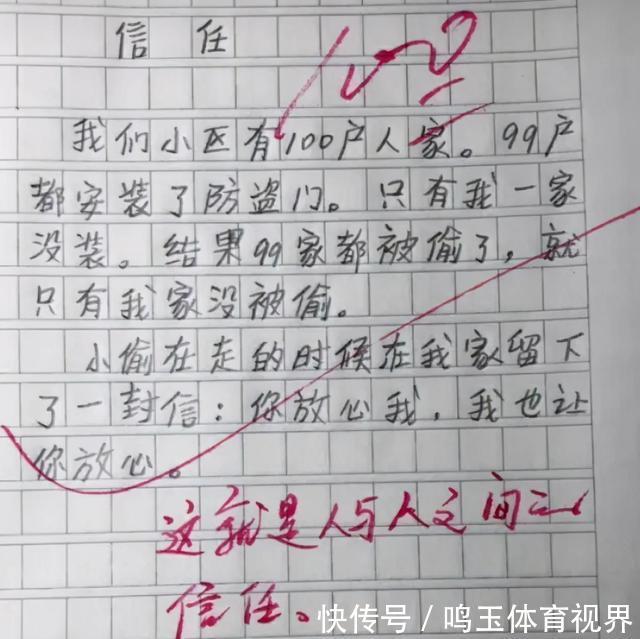 信任
100
我们小区有100户人家。99户
都安装了防盗门。只有我一家
没装。结果99家都被偷了，就
只有我家没被偷。
小偷在走的时候在我家留下
了一封信：你放心我，我也让
你放心。
这就是人与人之间的
信任。
快传号/鸣玉体育视界